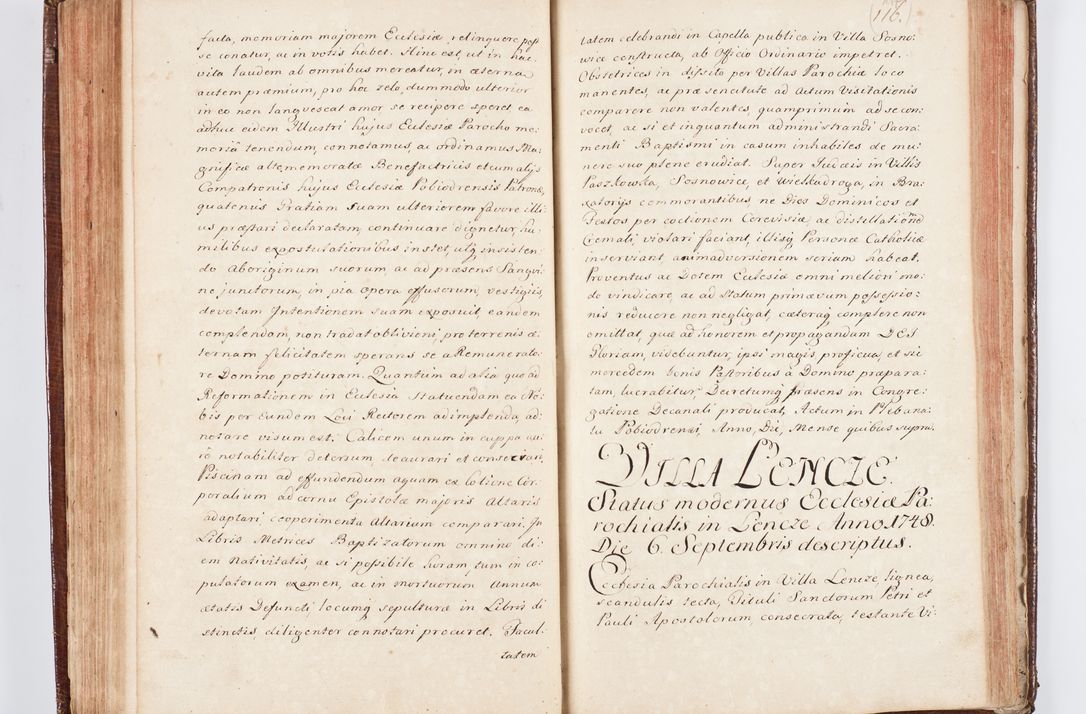 facta, memoriam majorem Ecclesiæ relinquere pos
se conatur, ac in votis habet. Hinc est, ut in hac
vita laudem ab omnibus mereatur, in æterna
autem præmium, pro hoc zelo, dummodo ulterior
in eo non langvescat amor se recipere speret ea
adhuc eidem Illustri hujus Ecclesiæ Parocho me:
moria tenendum, connotamus, ac ordinamus Ma:
gnificæ altememoratæ Benefactricis et cum alijs
Compatronis hujus Ecclesiæ Pobiodrensis Patronæ,
quatenus Gratiam Suam ulteriorem favore illi:
us præstari declaratam, continuare dignetur, hu:
milibus expostulationibus instet, utq insisten:
do Aboriginum suorum, ac ad præsens Sangvi:
ne junctorum, in pia opera effusorum, vestigiis,
devotam Intentionem suam exposuit, eandem
complendam, non tradat oblivioni, pro terrenis æ:
ternam felicitatem sperans se a Remunerato:
re Domino potituram. Quantum ad alia quo ad
Reformationem in Ecclesia statuendam ea No:
bis per Eundem Loci Rectorem adimplenda, ad:
notare visum est. Calicem unum in cuppa vi:
io notabiliter detersum, deaurari et consecrari,
Piscinam ad effundendum aquam ex lotione Cor:
poralium ad cornu Epistolæ majoris Altaris
adaptari cooperimenta Altarium comparari. In
Libris Metrices Baptizatorum omnino di:
em Nativitatis, ac si possibile horam, tum in co:
pulatorum examen, ac in mortuorum Annum
ætatis Defuncti locumq sepulturæ in Libris di
stinctis diligenter connotari procuret. Facul:
tatem
116.
tatem celebrandi in Capella publica in Villa Sosno:
wice constructa, ab Officio Ordinario impetret.
Obstetrices in dissito per Villas Parochiæ loco
manentes, ac præ senectute ad Actum Visitationis
comparere non valentes, quamprimum ad se con:
vocet, ac si et inquantum administrandi Sacra:
menti Baptismi in casum inhabiles de mu:
nere suo plene erudiat. Super Judæis in Villis
Paszkowka, Sosnowice, et Wielkadroga, in Bra:
xatorijs commorantibus, ne Dies Dominicos et
Festos per coctionem Cerevisiæ ac distillationē
Cremati, violari faciant, illisq Personæ Catholicæ
inserviant, animadversionem seriam habeat.
Proventus ac Dotem Ecclesiæ omni meliori mo:
do vindicare, ac ad Statum primævum possessio:
nis reducere non negligat, cæteraq complere non
omittat, quæ ad honorem et propagandam DEI
Gloriam, videbuntur, ipsi magis proficua, et sic
mercedem bonis Pastoribus à Domino præpara:
tam, lucrabitur, Decretumq præsens in Congre:
gatione Decanali producat, Actum in Plebana:
tu Pobiodrensi, Anno, Die, Mense quibus supra.
VILLA LENCZE.
Status modernus Ecclesiæ Pa:
rochialis in Lencze Anno 1748.
Die 6. Septembris descriptus.
Ecclesia Parochialis in Villa Lencze, lignea,
scandulis tecta, Tituli Sanctorum Petri et
Pauli Apostolorum, consecrata, testante Vi: